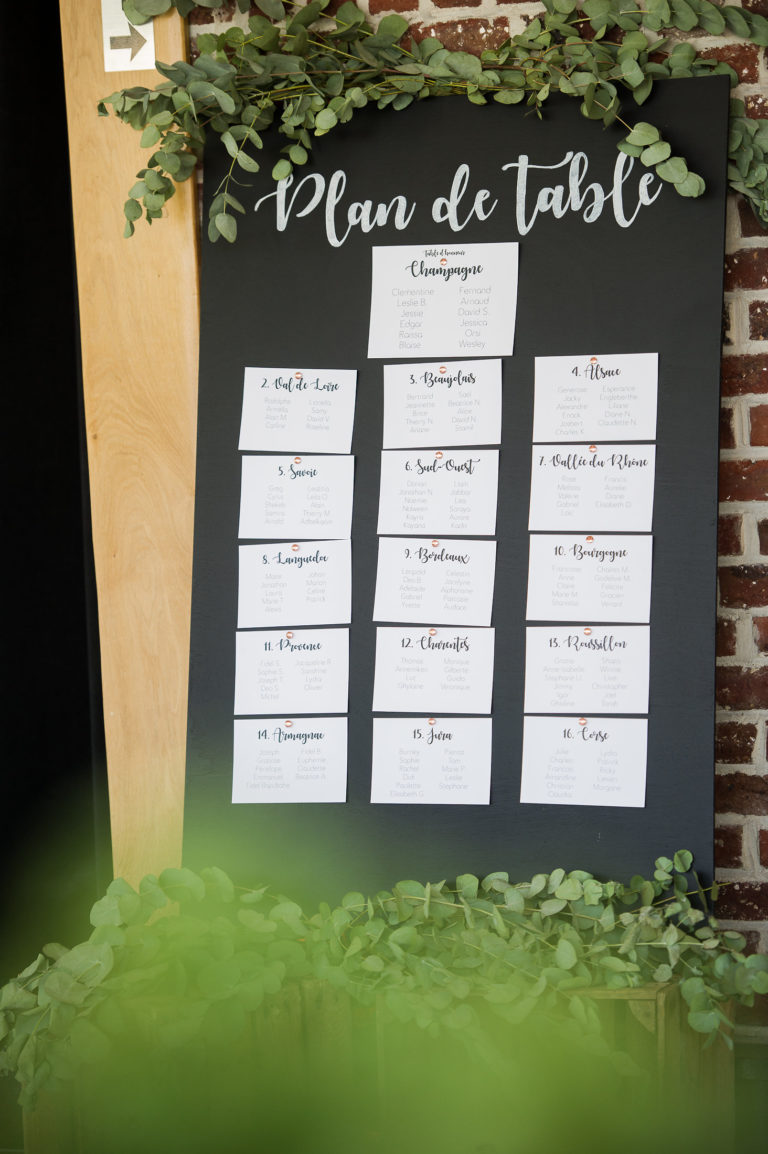 Plan de table
Table d'honneur
Champagne
Clementine Fernand
Leslie B. Arnaud
Jessie David S.
Edgar Jessica
Raissa Orsi
Blaise Wesley
2. Val de Loire
Rodolphe Lionella
Armella Samy
Alain M. David V.
Carline Roseline
3. Beaujolais
Bertrand Saël
Jeannette Béatrice N.
Brice Alice
Thierry N. David N.
Ariane
4. Alsace
Généreuse Espérance
Jacky Engleberthe
Alexandre Liliane
Enock Diane N.
Joubert Claudette N.
Charles K.
5. Savoie
Greg Laetitia
Cyrus Leila O.
Alain
Samira Thierry M.
Arnold
6. Sud-Ouest
Dorian Liam
Jonathan N. Jabbar
Noémie Lea
Nolween Soraya
Kayra Aurore
Kayana
7. Vallée du Rhône
Rose Francis
Melissa Aurelie
Valerie Diane
Gabriel Elisabeth D.
Loïc
8. Languedoc
Marie Johny
Jonathan Marian
Laura Céline
Marie T. Patrick
Alexis
9. Bordeaux
Léopold Célestin
Déo B. Jocelyne
Adélaïde Alphonsine
Gabriel
Yvette
10. Bourgogne
Françoise Charles M.
Anne Godelive M.
Claire Félicité
Marie M. Gracien
Venant
11. Provence
Fidel S. Jacqueline R.
Sophie S. Sandrine
Joseph T. Lydia
Déo S. Olivier
Michel
12. Charentes
Thomas Monique
Annemiken Gilberte
Luc Guido
Véronique
13. Roussillon
Gratia
Anne-Isabelle
Stéphane U. Livio
Jonny Christopher
Igor Joël
Ghislène Sarah
14. Armagnac
Joseph Fidel B.
Euphémie
Pénélope Claudette
Emmanuel Béatrice A.
15. Jura
Burney Pierrot
Sophie Tom
Rachel Marie P.
Didi Leslie
Paulette Stéphane
Elisabeth G.
16. Corse
Julie Lydia
Charles Patrick
François Ricky
Amandine Lewien
Christian Morgane
Claudia